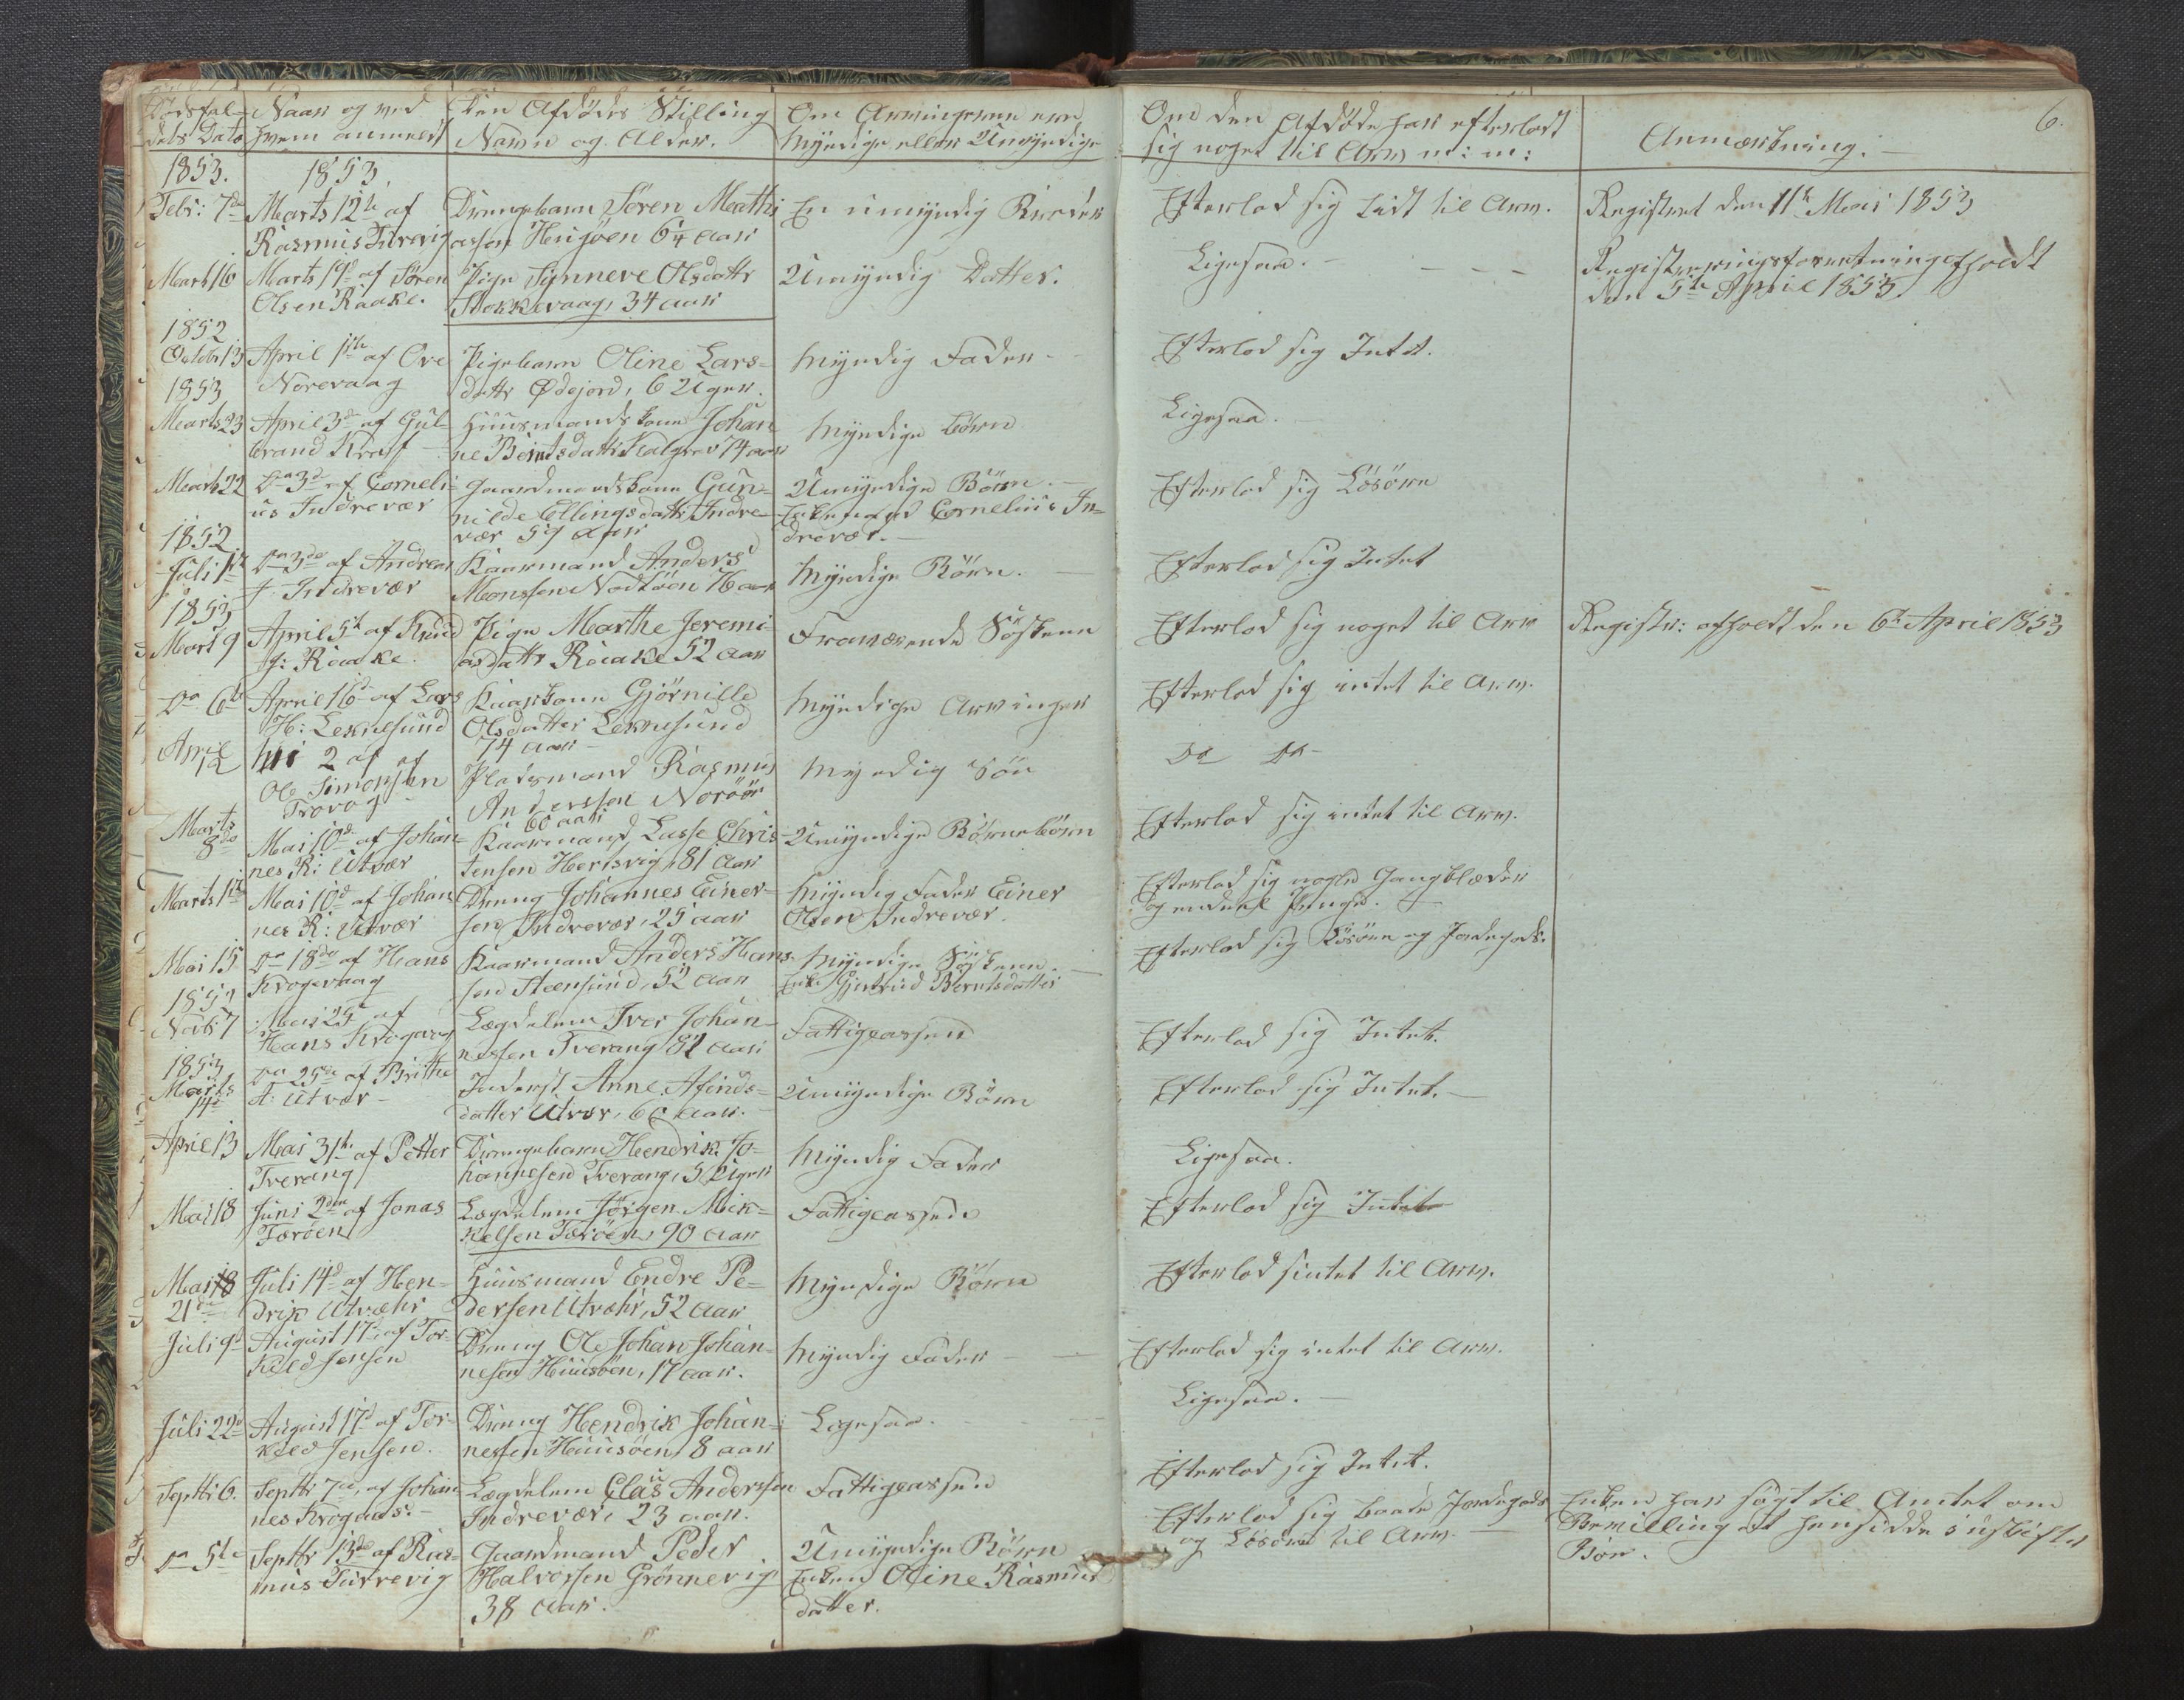 Dødsfal-
dets Dato
Naar og ved
hvem anmeldt
Den Afdødes Stilling
Navn og Alder.
Om Arvingerne ere
Myndige eller Umyndige
Om den Afdøde har efterladt
sig noget til Arv m: m:
Anmærkning.
6.
1853.
1853
Febr: 7de
Marts 12te af
Rasmus Turevig
Drengebarn Søren Mathi
assen Husøen 6¼ Aar
En umyndig Broder
Efterlod sig Lidt til Arv.
Registret den 11te Mai 1853
Marts 16
Marts 19d af Søren
Olsen Raake.
Pige Synneve Olsdattr
Stokkevaag, 34 Aar
Umyndig Datter.
Ligesaa.
Registreringsforretning afholdt
den 5te April 1853.
1852
Octobr 13
April 1ste af Ove
Norevaag
Pigebarn Oline Lars-
dattr Ødejord, 6 Uger.
Myndig Fader
Efterlod sig Intet.
1853
Marts 23
April 3d af Gul-
brand Kraf
Huusmandskone Johan
ne Berntsdattr Kalgrav 74 Aar
Myndige Børn
Ligesaa.
Marts 22
Do 3d af Corneli-
us Indrevær
Gaardmandskone Gun-
nilde Ellingsdattr Indre-
vær 59 Aar
Umyndige Børn.
Enkemand Cornelius In-
drevær.
Efterlod sig Løsøre
1852
Juli 1ste
Do 3de af Andreas
J. Indrevær
Kaarmand Anders
Monssen Nodtøen 76 Aar
Myndige Børn.
Efterlod sig Intet
1853
Marts 9
April 5te af Knud
J: Raake.
Pige Marthe Jeremi-
asdattr Raake 52 Aar
Fraværende Søskene
Efterlod sig noget til Arv
Registr: afholdt den 6te April 1853
Do 6te
April 16d af Lars
H: Leknesund
Kaarkone Gjørnille
Olsdatter Leknesund
74 Aar
Myndige Arvinger
Efterlod sig intet til Arv.
April
12
Mi 2 af af
Ole Simonssen
Trovog
Pladsmand Rasmus
Anderssen Norøør
60 aar
Myndig Søn
Do Do
Marts
8de
Mai 10d af Johan-
nes R: Utvær
Kaarmand Lasse Chris-
tensen Hersvig, 81 Aar
Umyndige Børnebørn
Efterlod sig intet til Arv.
Marts 1ste
Mai 10d af Johan
nes R: Utvær
Dreng Johannes Einer-
sen Indrevær, 25 Aar
Myndig Fader Einer
Olsen Indrevær.
Efterlod sig nogle Gangklæder
og endeel Penge.
Mai 15
Do 18de af Hans
Krogevaag
Kaarmand Anders Hans-
sen Steensund, 52 Aar
Myndige Søskene.
Enke Gjertrud Berntsdatter
Efterlod sig Løsøre og Jordegods.
1852
Novbr 7
Mai 25 af
Hans Krogevaag
Lægdslem Iver Johan-
nessen Tverang 82 Aar
Fattigcassen
Efterlod sig Intet.
1853
Marts
14d
Do 25de af Brithe
A: Utvær
Inderst Anne Afinds-
datter Utvær, 60 Aar.
Umyndige Børn
Efterlod sig Intet.
April 13
Mai 31te af Petter
Tverang
Drengebarn Hendrik Jo-
hannessen Tverang, 5 Uger
Myndig Fader
Ligesaa.
Mai 18
Juni 2den af Jonas
Færøen
Lægdslem Jørgen Mik-
kelsen Færøen, 90 Aar
Fattigcassen
Efterlod sig Intet
Mai 18
21de
Juli 14d af Hen-
drik Utvæhr
Huusmand Endre Pe-
dersen Utvæhr, 52 Aar
Myndige Børn
Efterlod sintet til Arv.
Juli 9d
August 17d af Tor-
kild Jensen
Dreng Ole Johan Johan-
nesen Huusøen, 17 Aar.
Myndig Fader
Efterlod sig intet til Arv.
Juli 22d
August 17d af Tor-
keld Jensen.
Dreng Hendrik Johan-
nessen Huusøen, 8 aar
Ligesaa.
Ligesaa.
Septbr 6.
Septbr 7de, af Johan
nes Krogaas.
Lægdslem Claus Anderssen
Indrevær, 23 aar.
Fattigcassen
Efterlod sig Intet.
Do 5te
Septbr 13de af Ras-
mus Turrevig
Gaardmand Peder
Halvorssen Grønnevig
38 Aar.
Umyndige Børn
Enken Oline Rasmus
datter.
Efterlod sig baade Jordegods
og Løsøre til Arv.
Enken har søgt til Amtet om
Bevilling at hensidde i uskiftet
Boe.